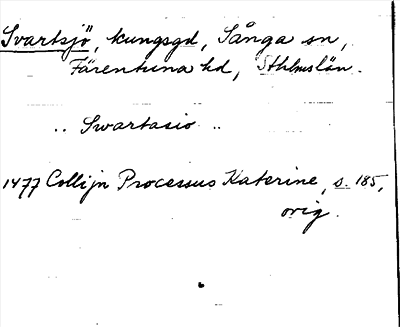 Svartsjö, kungsgd, Sånga sn,
Färentuna hd, Sthlmslän.
.. Swartasio ..
1477 Collijn Processus Katerine, s. 185,
orig.